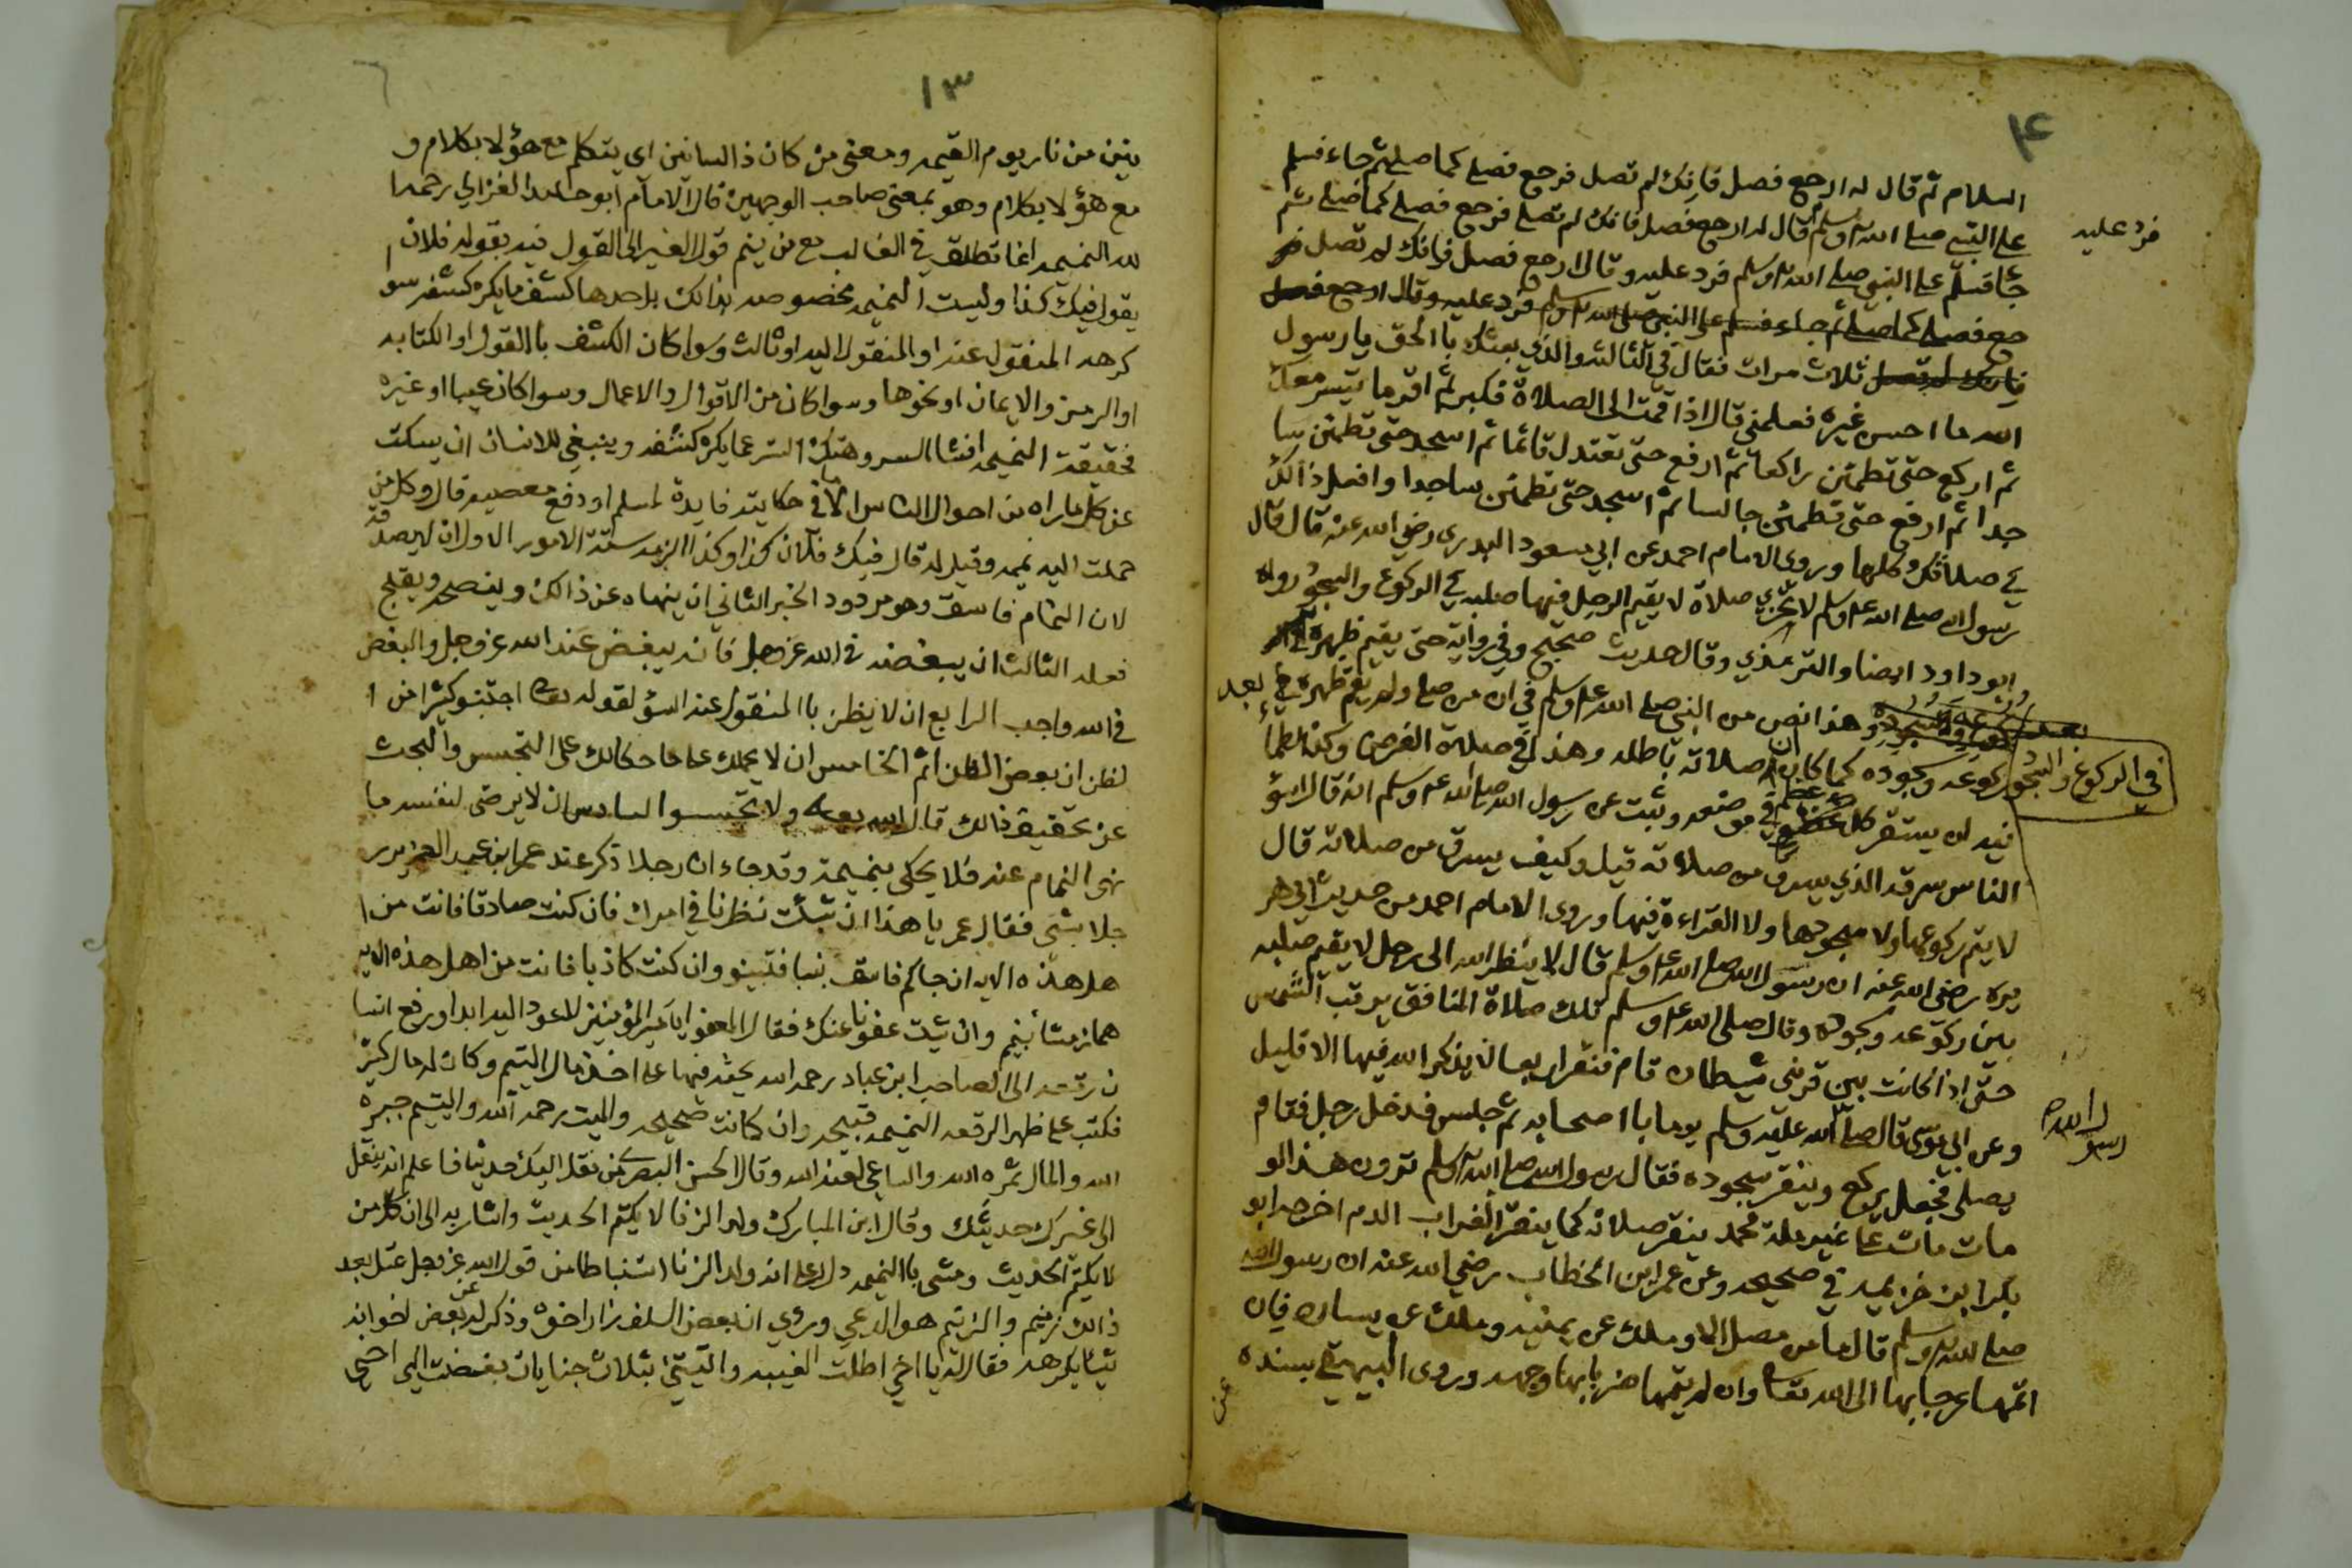 ۴
السلام ثم قال له ارجع فصل فانك لم تصل فرجع فصلى كما صلى ثم جاء فسلم
على النبي صلى الله عليه وسلم ثم قال له ارجع فصل فانك لم تصلي فرجع فصلى كما صلى ثم
فرد عليه
جا فسلم على النبي صلى الله عليه وسلم فرد عليه وقال ارجع فصل فانك لم تصل فر
جع فصلى كما صلى ثم جاء فسلم على النبي صلى الله عليه وسلم فرد عليه وقال ارجع فصل
فانك لم تصل ثلاث مرات فقال في الثالثه والذي بعثك باالحق يا رسول
الله ما احسن غيره فعلمني قال اذا قمت الى الصلاة فكبر ثم اقر ما تيسر معك
ثم اركع حتى تطمئن راكعا ثم ارفع حتى تعتدل قائما ثم اسجد حتى تطمئن سا
جدا ثم ارفع حتى تطمئن جالسا ثم اسجد حتى تطمئن ساجدا وافعل ذالك
في صلاتك كلها وروى الامام احمد عن ابي مسعود البدري رضي الله عنه قال قال
رسول الله صلى الله عليه وسلم لا تجزي صلاة لا يقيم الرجل فيها صلبه في الركوع والسجود رواه
ابو داود ايضا والترمذي وقال حديث صحيح وفي رواية حتى يقيم ظهره
في الركوع والسجود
وهذا نص من النبي صلى الله عليه وسلم في ان من صلى ولم يقم ظهره بعد
ركوعه وسجوده كما كان ان صلاته باطله وهذا في صلاة الفرض وكذا الطما
نيه ان يستقر كل عضو في موضعه وثبت عن رسول الله صلى الله عليه وسلم انه قال اسؤ
الناس سرقه الذي يسرق من صلاته قيل وكيف يسرق من صلاته قال
لا يتم ركوعها ولا سجودها ولا القراءة فيها وروى الامام احمد من حديث ابي هر
يره رضي الله عنه ان رسول الله صلى الله عليه وسلم قال لا ينظر الله الى رجل لا يقيم صلبه
بين ركوعه وسجوده وقال صلى الله عليه وسلم تلك صلاة المنافق يرقب الشمس
حتى اذا كانت بين قرني شيطان قام فنقر اربعا لا يذكر الله فيها الا قليل
وعن ابي موسى قال صلى الله عليه وسلم يوما باصحابه ثم جلس فدخل رجل فقام
رسول الله
يصلي فجعل يركع وينقر سجوده فقال رسول الله صلى الله عليه وسلم ترون هذا لو
مات مات على غير ملة محمد ينقر صلاته كما ينقر الغراب الدم اخرجه ابو
بكر ابن خزيمه في صحيحه وعن عمر ابن الخطاب رضي الله عنه ان رسول الله
صلى الله عليه وسلم قال ما من مصل الا وملك عن يمينه وملك عن يساره فان
اتمها عرجا بها الى الله تعالى وان لم يتمها ضربا بها وجهه وروى البيهقي بسنده
عن
١٣
ينين من نار يوم القيمه ومعنى من كان ذا لسانين اي يتكلم مع هؤلا بكلام و
مع هؤلا بكلام وهو بمعنى صاحب الوجهين قال الامام ابو حامد الغزالي رحمه ا
لله النميمه انما تطلق في الغالب مع من ينم قول الغير الى القول فيه بقوله فلان
يقول فيك كذا وليست النميمه مخصوصه بذالك بل حدها كشف ما يكره كشفه سو
كرهه المنقول عنه او المنقول اليه او ثالث وسوا كان الكشف باالقول او الكتابه
او الرمز والايمان او نحوها وسوا كان من الاقوال والاعمال وسوا كان عيبا او غيره
فحقيقة النميمه افشا السر وهتك الستر عما يكره كشفه وينبغي للانسان ان يسكت
عن كل ما راه من احوال الناس الا في حكايته فايدة لمسلم او دفع معصيه قال وكل من
حملت اليه نميمه وقيل له قال فيك فلان كذا وكذا لزمه ستة الامور الاول ان لا يصدقه
لان النمام فاسق وهو مردود الخبر الثاني ان ينهاه عن ذالك وينصحه ويقبح
فعله الثالث ان يبغضه في الله عز وجل فانه بيغض عند الله عز وجل والبغض
في الله واجب الرابع ان لا يظن باالمنقول عنه السؤ لقوله تعالى اجتنبو كثيرا من ا
لظن ان بعض الظن اثم الخامس ان لا يحملك على ما حكالك على التجسس والبحث
عن تحقيق ذالك قال الله تعالى ولا تجسسوا السادس ان لا يرضى لنفسه ما
نهى النمام عنه فلا يحكى بنميمة وقد جاء ان رجلا ذكر عند عمر ابن عبد العزيز ر
جلا بشي فقال عمر يا هذا ان شئت نظرنا في امرك فان كنت صادقا فانت من ا
هل هذه الايه ان جاكم فاسق بنبا فتبينو وان كنت كاذبا فانت من اهل هذه الايه
هماز مشا بنميم وان شئت عفونا عنك فقال العفو يا امير المؤمنين لا اعود اليه ابدا ورفع انسا
ن رقعه الى الصاحب ابن عباد رحمه الله يحثه فيها على اخذ مال اليتيم وكان له مال كثير
فكتب على ظهر الرقعه النميمه قبيحه وان كانت صحيحه والميت رحمه الله واليتيم جبره
الله والمال ثمره الله والساعي لعنه الله وقال الحسن البصري من نقل اليك حديثا فاعلم انه ينقل
الى غيرك حديثك وقال ابن المبارك ولد الزنا لا يكتم الحديث واشار به الى ان كل من
لا يكتم الحديث ومشى باالنميمه دل على انه ولد الزنا استنباطا من قول الله عز وجل عتل بعد
ذالك زنيم والزنيم هو الدعي وروي ان بعض السلف زار اخوه وذكر له عن بعض اخوانه
شيا يكرهه فقال له يا اخي اطلت الغيبه واتيتني بثلاث جنايات بغضت الي اخي